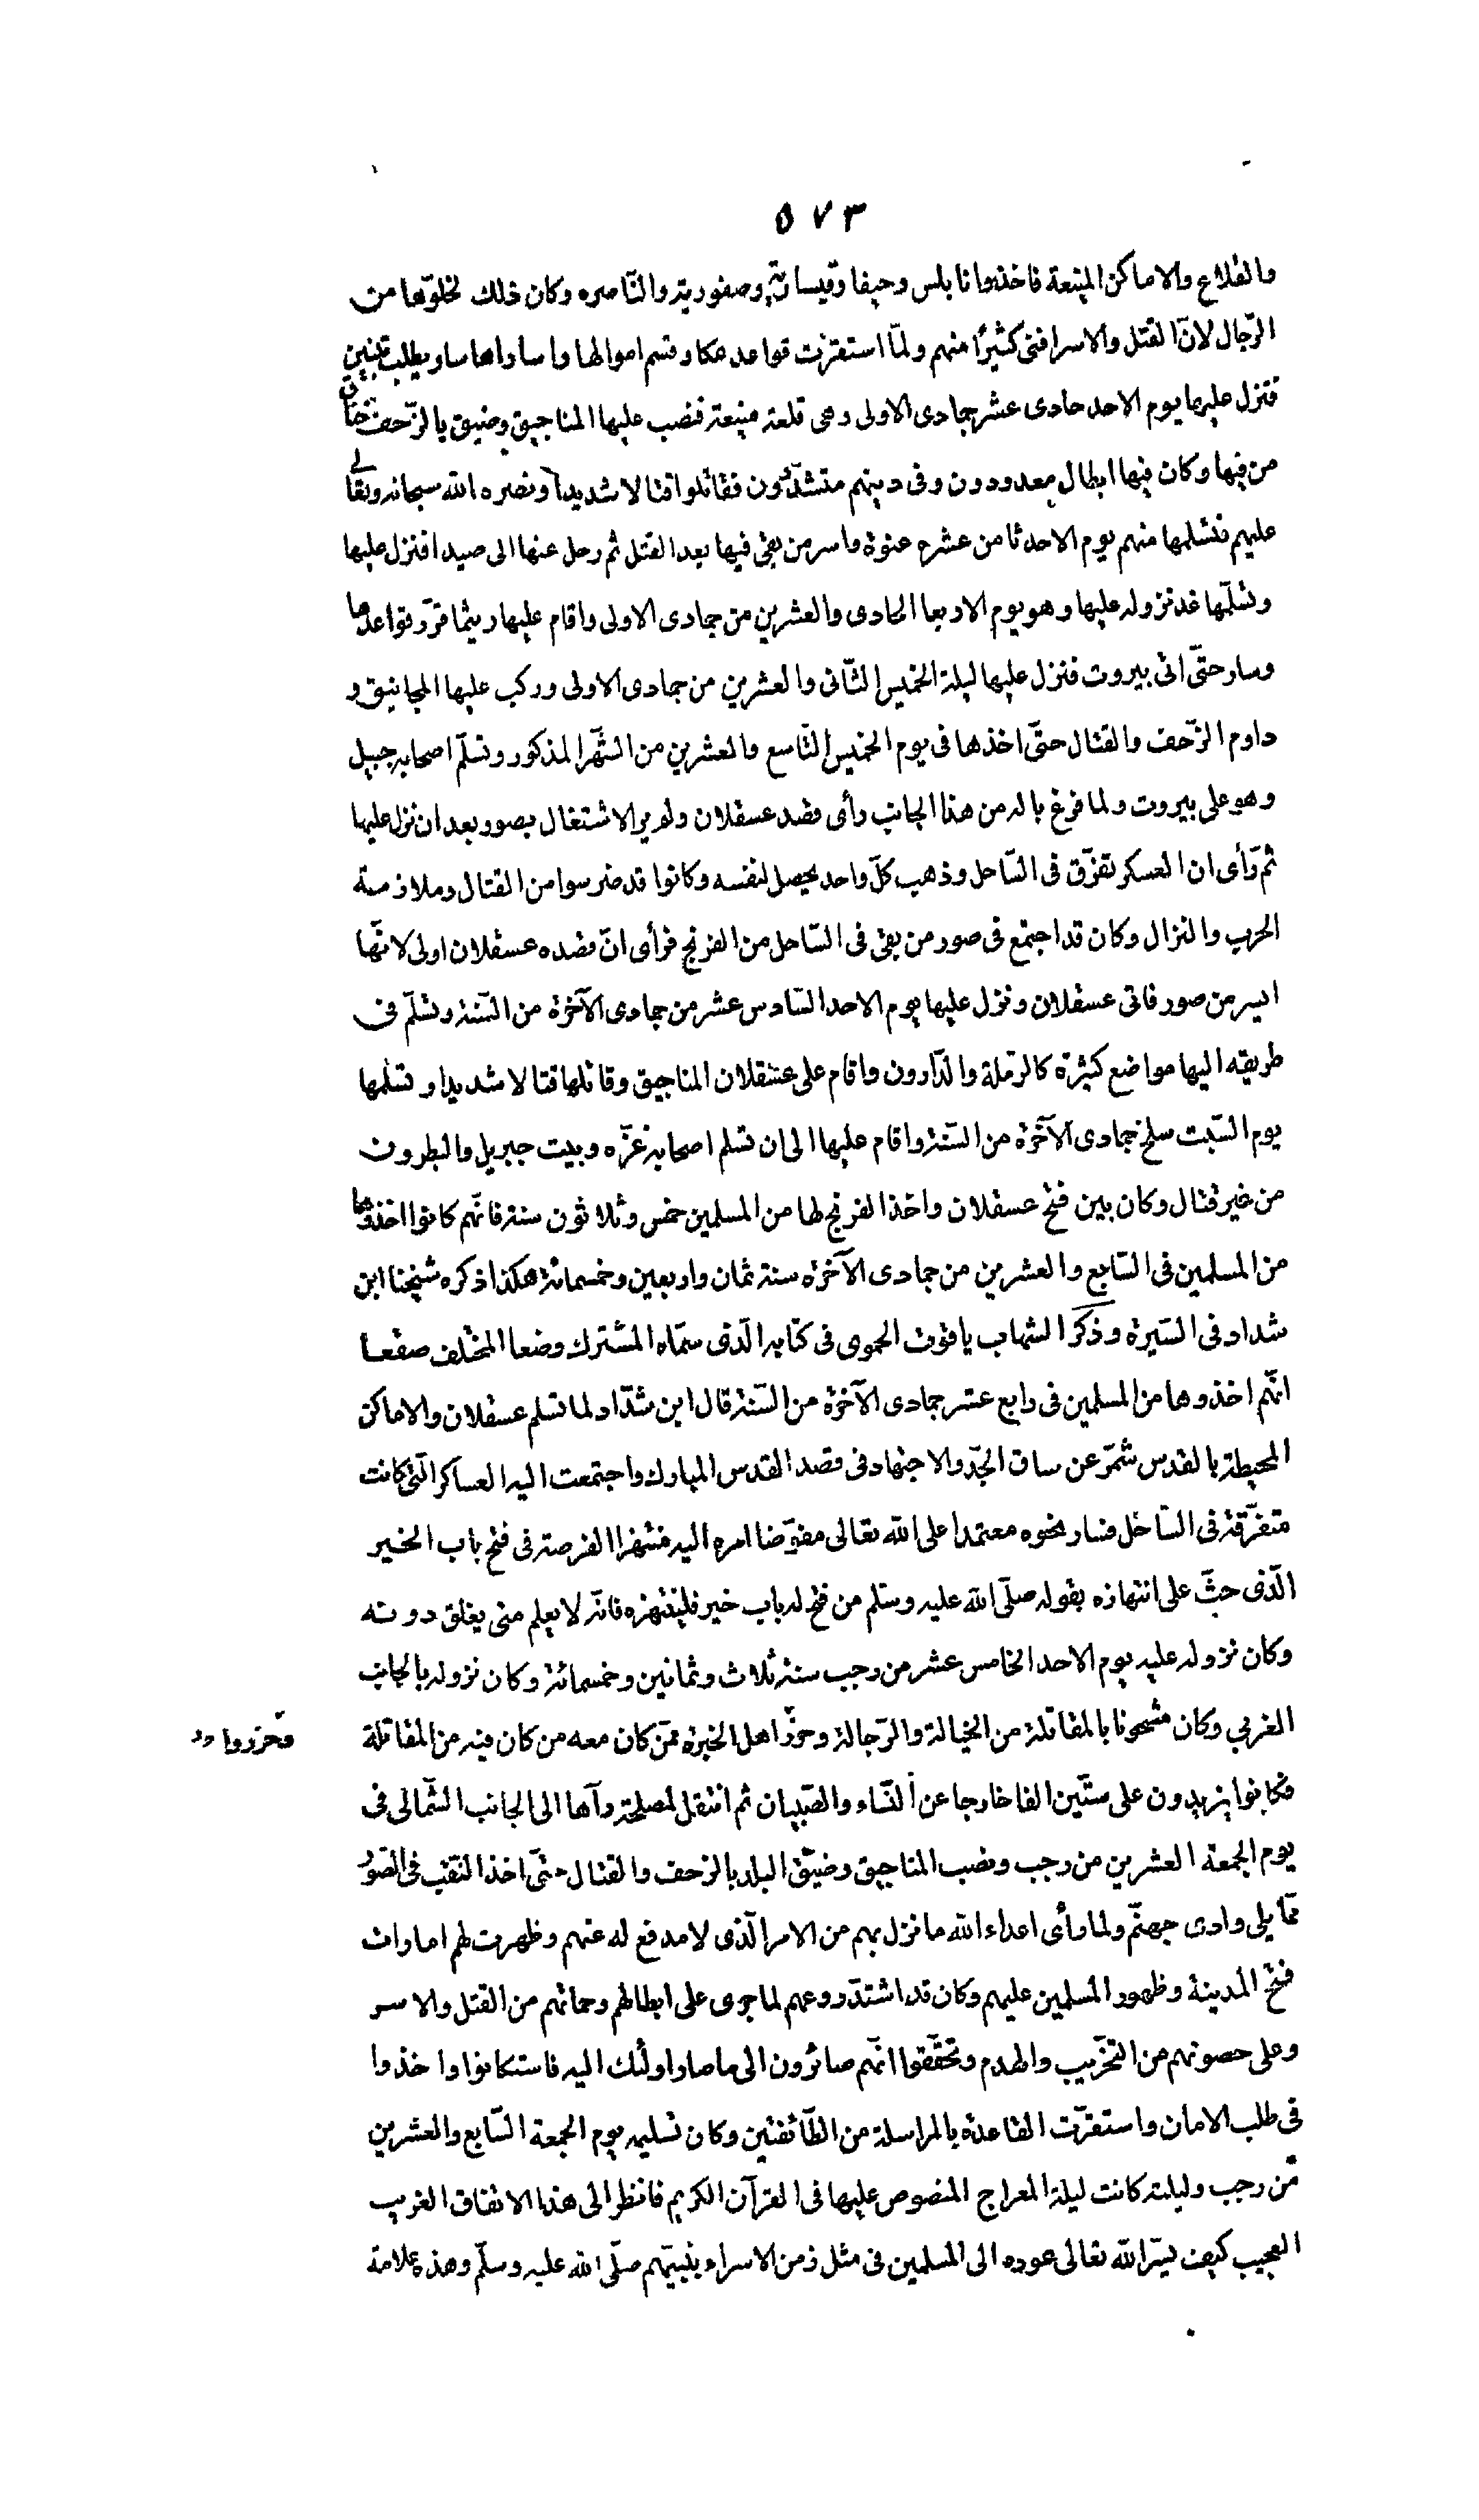 ٥٧٣
والقلاع والاماكن المنيعة فاخذوا نابلس وحيفا وقيساريّة وصفوريّة والنّاصره وكان ذلك لخلوّها من
الرّجال لانّ القتل والاسر افنى كثيرًا منهم ولمّا استقرّت قواعد عكا وقسم اموالها واساراها سار يطلب تبنين
فنزل عليها يوم الاحد حادى عشر جمادى الاولى وهى قلعة منيعة فنصب عليها المناجيق وضيق بالزّحف خناق
من فيها وكان فيها ابطال معدودون وفى دينهم متشدّدون فقاتلوا قتالا شديداً ونصره الله سبحانه وتعالى
عليهم فتسلمها منهم يوم الاحد ثامن عشره عنوة واسر من بقى فيها بعد القتل ثم رحل عنها الى صيدا فنزل عليها
وتسلّمها غد نزوله عليها وهو يوم الاربعا الحادى والعشرين من جمادى الاولى واقام عليها ريثما قرّر قواعدها
وسار حتّى اتى بيروت فنزل عليها ليلة الخميس الثّانى والعشرين من جمادى الاولى وركب عليها المجانيق و
داوم الزّحف والقتال حتّى اخذها فى يوم الخميس التّاسع والعشرين من الشّهر المذكور وتسلّم اصحابه جبيل
وهو على بيروت ولما فرغ باله من هذا الجانب رأى قصد عسقلان ولم ير الاشتغال بصور بعد ان نزل عليها
ثم رّأى ان العسكر تفرّق فى السّاحل وذهب كلّ واحد يحصل لنفسه وكانوا قد ضرسوا من القتال وملازمة
الحرب والنزال وكان قد اجتمع فى صور من بقى فى السّاحل من الفرنج فرأى انّ قصده عسقلان اولى لانّها
ايسر من صور فاتى عسقلان ونزل عليها يوم الاحد السّادس عشر من جمادى الآخرة من السّنة وتسلّم فى
طريقه اليها مواضع كثيرة كالرّملة والدّارون واقام على عسقلان المناجيق وقاتلها قتالا شديدا وتسلمها
يوم السّبت سلخ جمادى الآخرة من السّنة واقام عليها الى ان تسلم اصحابه غزّه وبيت جبريل والنطرون
من غير قتال وكان بين فتح عسقلان واخذ الفرنج لها من المسلمين خمس وثلاثون سنة فانّهم كانوا اخذوها
من المسلمين فى السّابع والعشرين من جمادى الآخرة سنة ثمان واربعين وخمسمائة هكذا ذكره شيخنا ابن
شداد فى السّيرة وذكر الشهاب ياقوت الحموى فى كتابه الّذى سمّاه المشترك وضعا المختلف صقعا
انّهم اخذوها من المسلمين فى رابع عشر جمادى الآخرة من السّنة قال ابن شدّاد لما تسلم عسقلان والاماكن
المحيطة بالقدس شمّر عن ساق الجدّ والاجتهاد فى قصد القدس المبارك واجتمعت اليه العساكر الّتى كانت
متفرّقة فى السّاحل فسار نحوه معتمدا على الله تعالى مفوّضا امره اليه منتهزا الفرصة فى فتح باب الخير
الّذى حثّ على انتهازه بقوله صلّى الله عليه وسلّم من فتح له باب خير فلينتهزه فانّه لا يعلم متى يغلق دونه
وكان نزوله عليه يوم الاحد الخامس عشر من رجب سنة ثلاث وثمانين وخمسمائة وكان نزوله بالجانب
الغربي وكان مشحونا بالمقاتلة من الخيالة والرّجالة وحزّر اهل الخبرة ممّن كان معه من كان فيه من المقاتلة
وحزروا
فكانوا يزيدون على ستّين الفا خارجا عن النّساء والصّبيان ثم انتقل لمصلحة رآها الى الجانب الشّمالى فى
يوم الجمعة العشرين من رجب ونصب المناجيق وضيّق البلد بالزحف والقتال حتّى اخذ النّقب فى السّور
ممّا يلى وادى جهنّم ولما رأى اعداء الله ما نزل بهم من الامر الّذى لا مدفع له عنهم وظهرت لهم امارات
فتح المدينة وظهور المسلمين عليهم وكان قد اشتدّ روعهم لما جرى على ابطالهم وحماتهم من القتل والاسر
وعلى حصونهم من التخّريب والهدم وتحقّقوا انّهم صائرون الى ما صار اولئك اليه فاستكانوا واخذوا
فى طلب الامان واستقرّت القاعدة بالمراسلة من الطّائفتين وكان تسليمه يوم الجمعة السّابع والعشرين
من رجب وليلته كانت ليلة المعراج المنصوص عليها فى القرآن الكريم فانظر الى هذا الاتفاق الغريب
العجيب كيف يسّر الله تعالى عوده الى المسلمين فى مثل زمن الاسراء بنبيّهم صلّى الله عليه وسلّم وهذه علامة